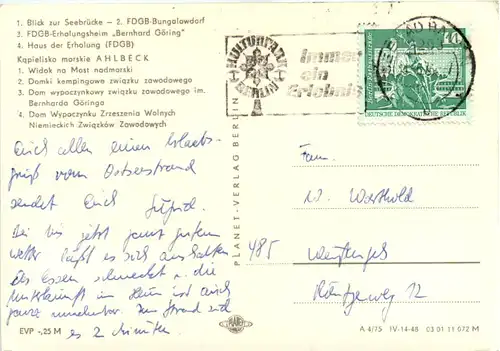 1. Blick zur Seebrücke – 2. FDGB-Bungalowdorf
3. FDGB-Erholungsheim „Bernhard Göring"
4. Haus der Erholung (FDGB)
Kąpielisko morskie AHLBECK
1. Widok na Most nadmorski
2. Domki kempingowe związku zawodowego
3. Dom wypoczynkowy związku zawodowego im.
Bernharda Göringa
4. Dom Wypoczynku Zrzeszenia Wolnych
Niemieckich Związków Zawodowych
KULTURPARK
BERLIN
Immer
ein
Erlebnis
DEUTSCHE DEMOKRATISCHE REPUBLIK
Euch allen einen Urlaubs-
gruß vom Ostseestrand
sendet Euch
Bei bis jetzt ganz gutem
Wetter läßt es sich aushalten
das Essen schmeckt u. die
Unterkunft im Heim ist auch
ganz annehmbar. Zum Strand sind
es 2 Minuten.
PLANET-VERLAG BERLIN
Fam.
W. Warthold
485 Weißenfels
12
EVP -,25 M
PLANET
A 4/75 IV-14-48 03 01 11 072 M